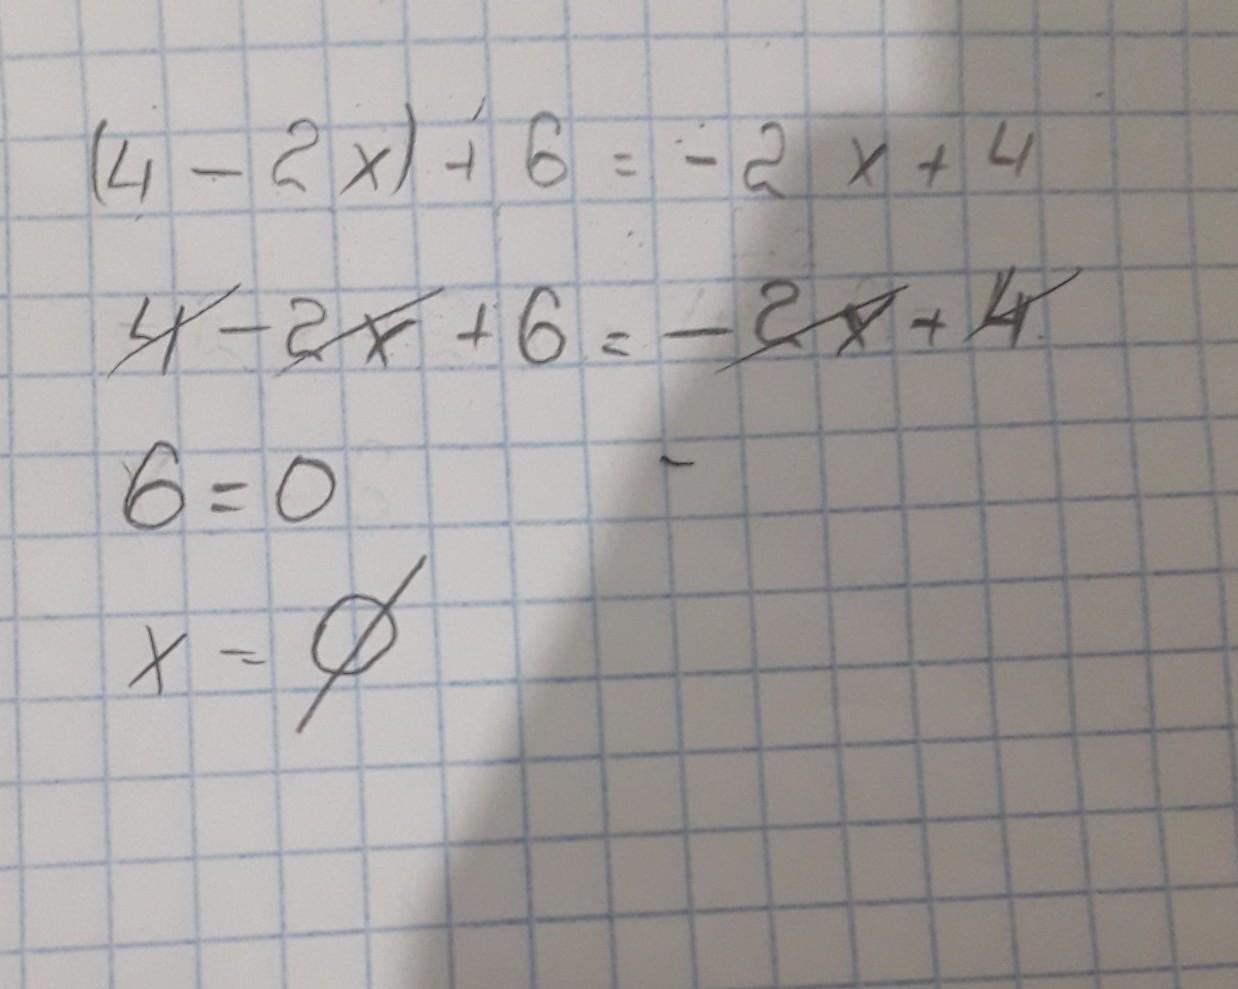 (4 - 2x) + 6 = - 2 x + 4
4 - 2x + 6 = - 2x + 4
6 = 0
x = ∅